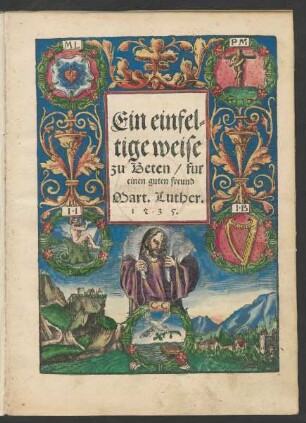 M L
P M
Ein einfel-
tige weise
zu Beten / fur
einen guten freund
Mart. Luther.
1 5 3 5.
I · I
I · B